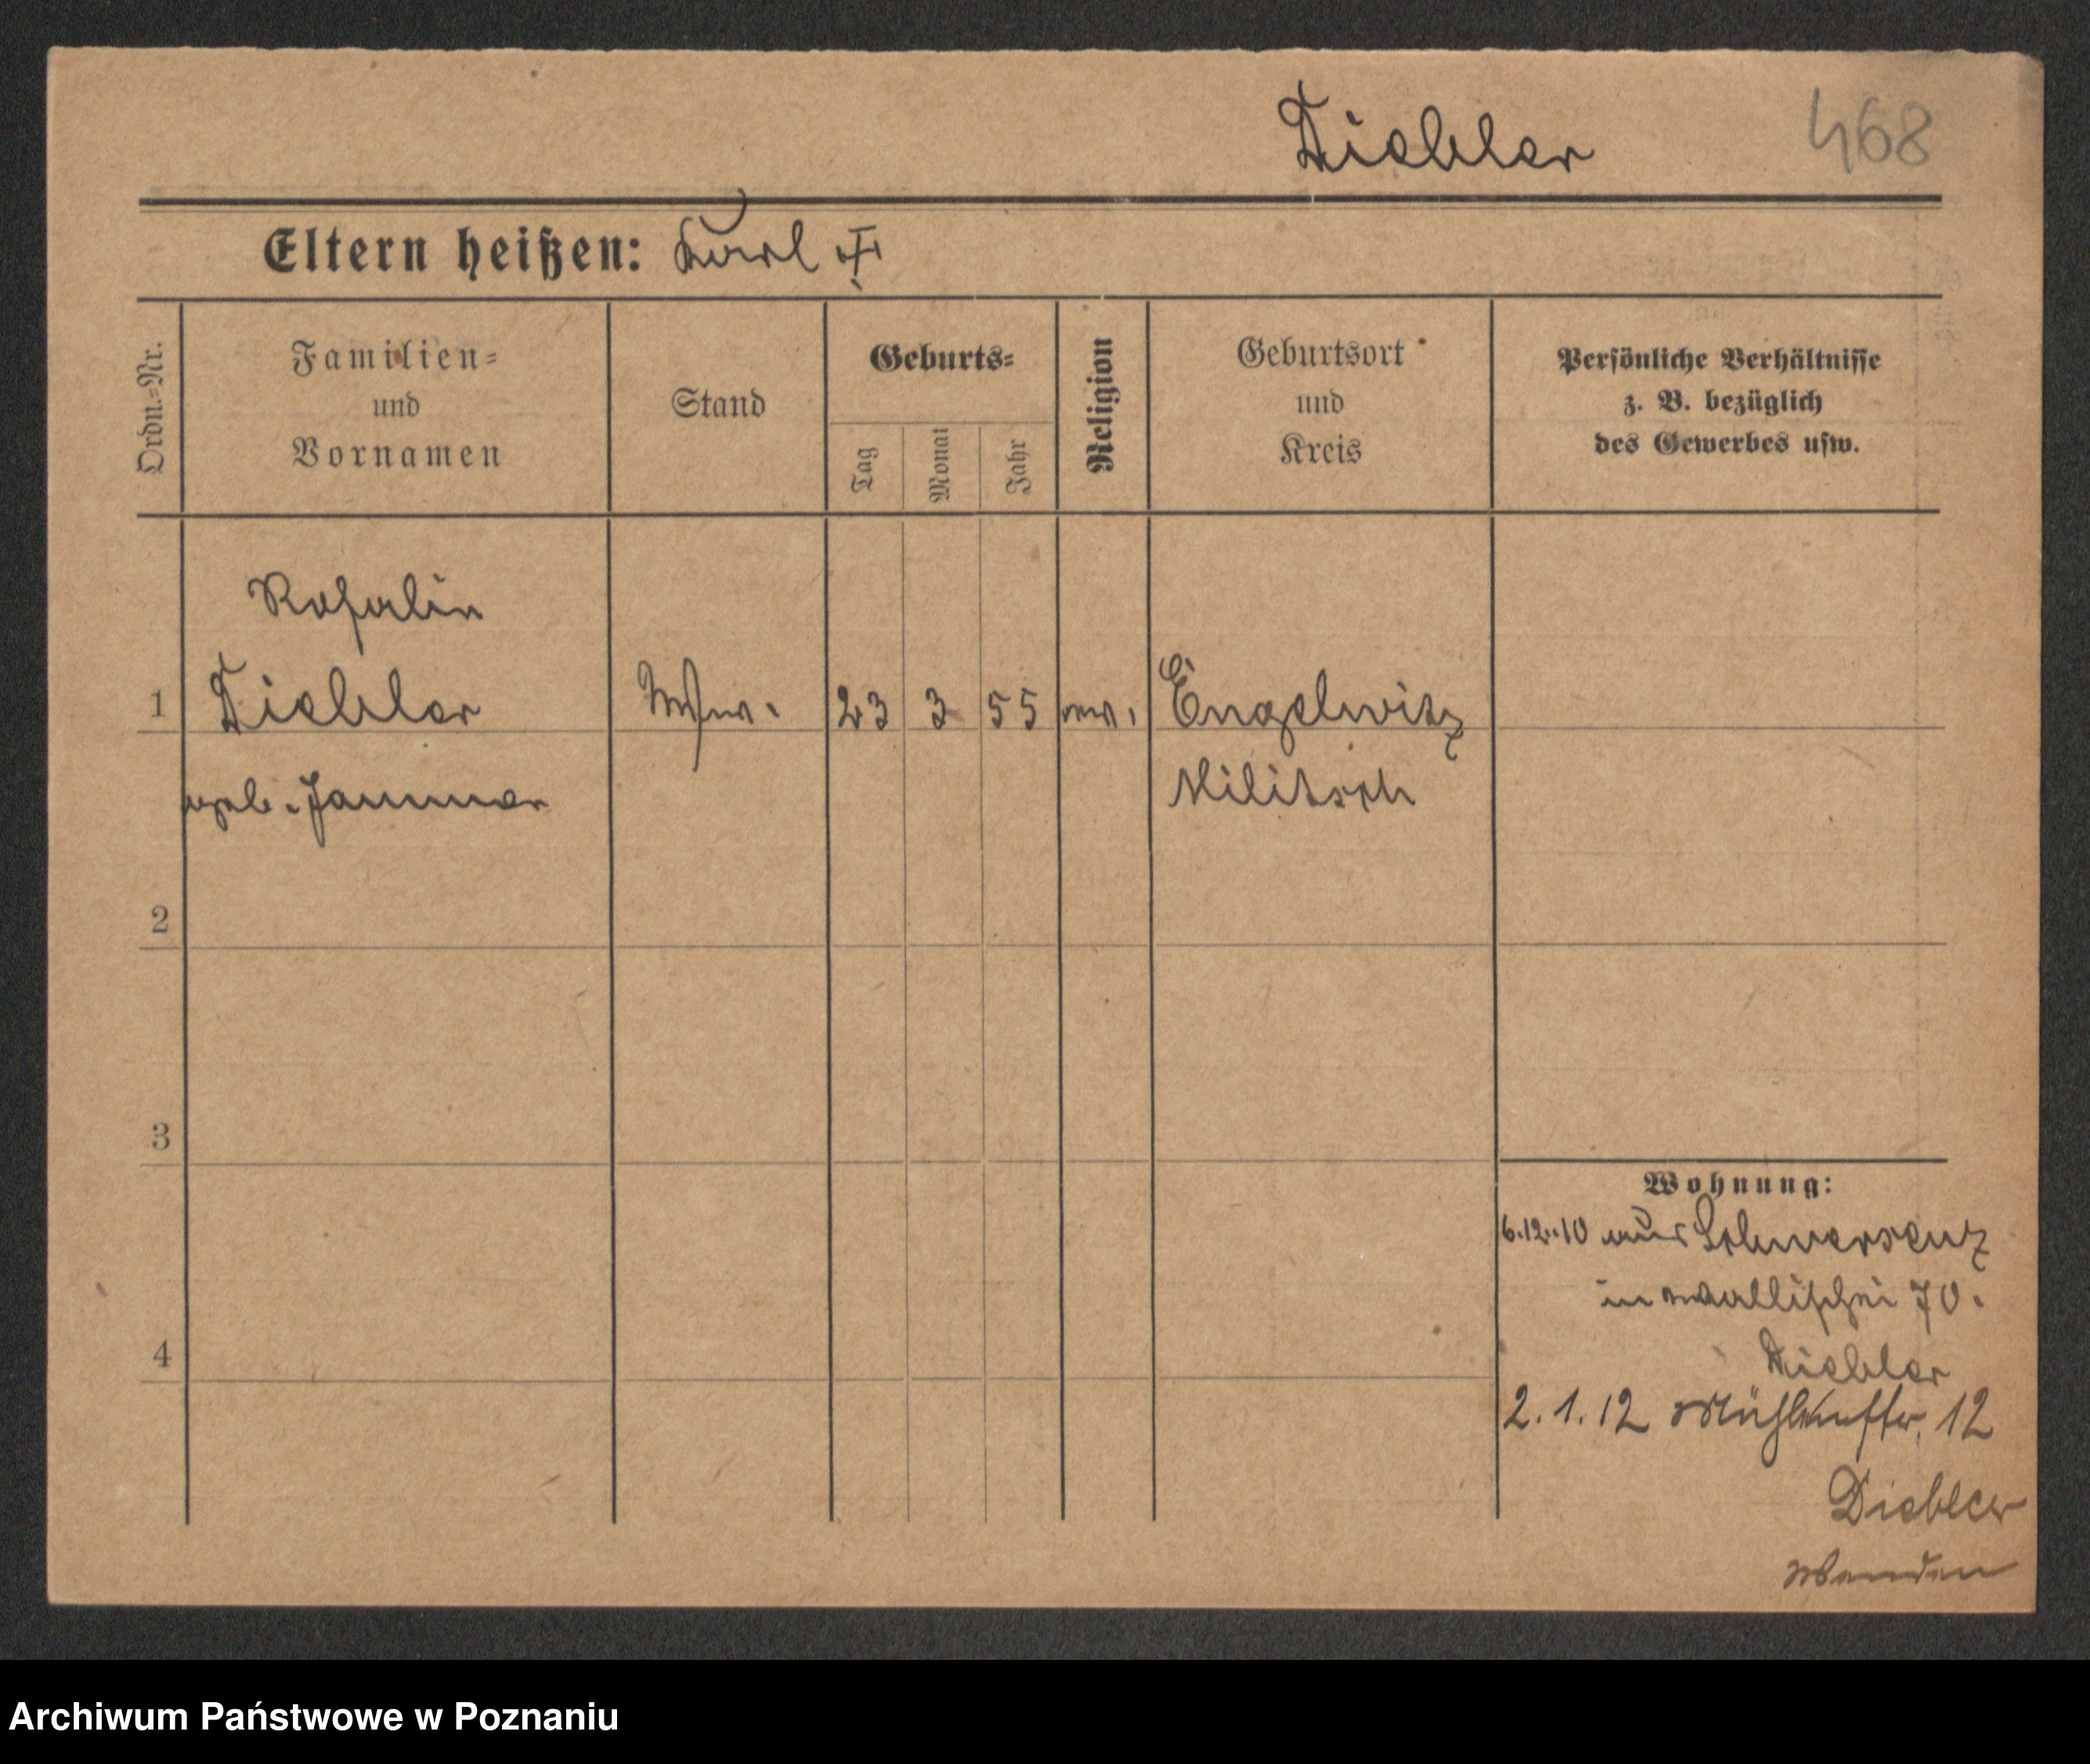 Diebler 468
Eltern heißen: Karl †
Ordn.=Nr.
Familien=
und
Vornamen
Stand
Geburts=
Tag
Monat
Jahr
Religion
Geburtsort
und
Kreis
Persönliche Verhältnisse
z. B. bezüglich
des Gewerbes usw.
Rosalie
1 Diebler Wwe. 23 3 55 ev.
geb. Januar
Militsch
2
3
4
Wohnung:
6.12.10 aus Schwersenz
in Wallischei 70.
Diebler
2.1.12 12
Diebler
Wenden
Archiwum Państwowe w Poznaniu